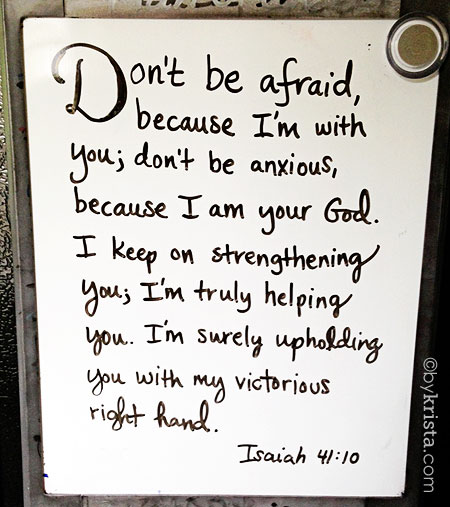 Don't be afraid,
because I'm with
you; don't be anxious,
because I am your God.
I keep on strengthening
you; I'm truly helping
you. I'm surely upholding
you with my victorious
right hand.
Isaiah 41:10
©bykrista.com